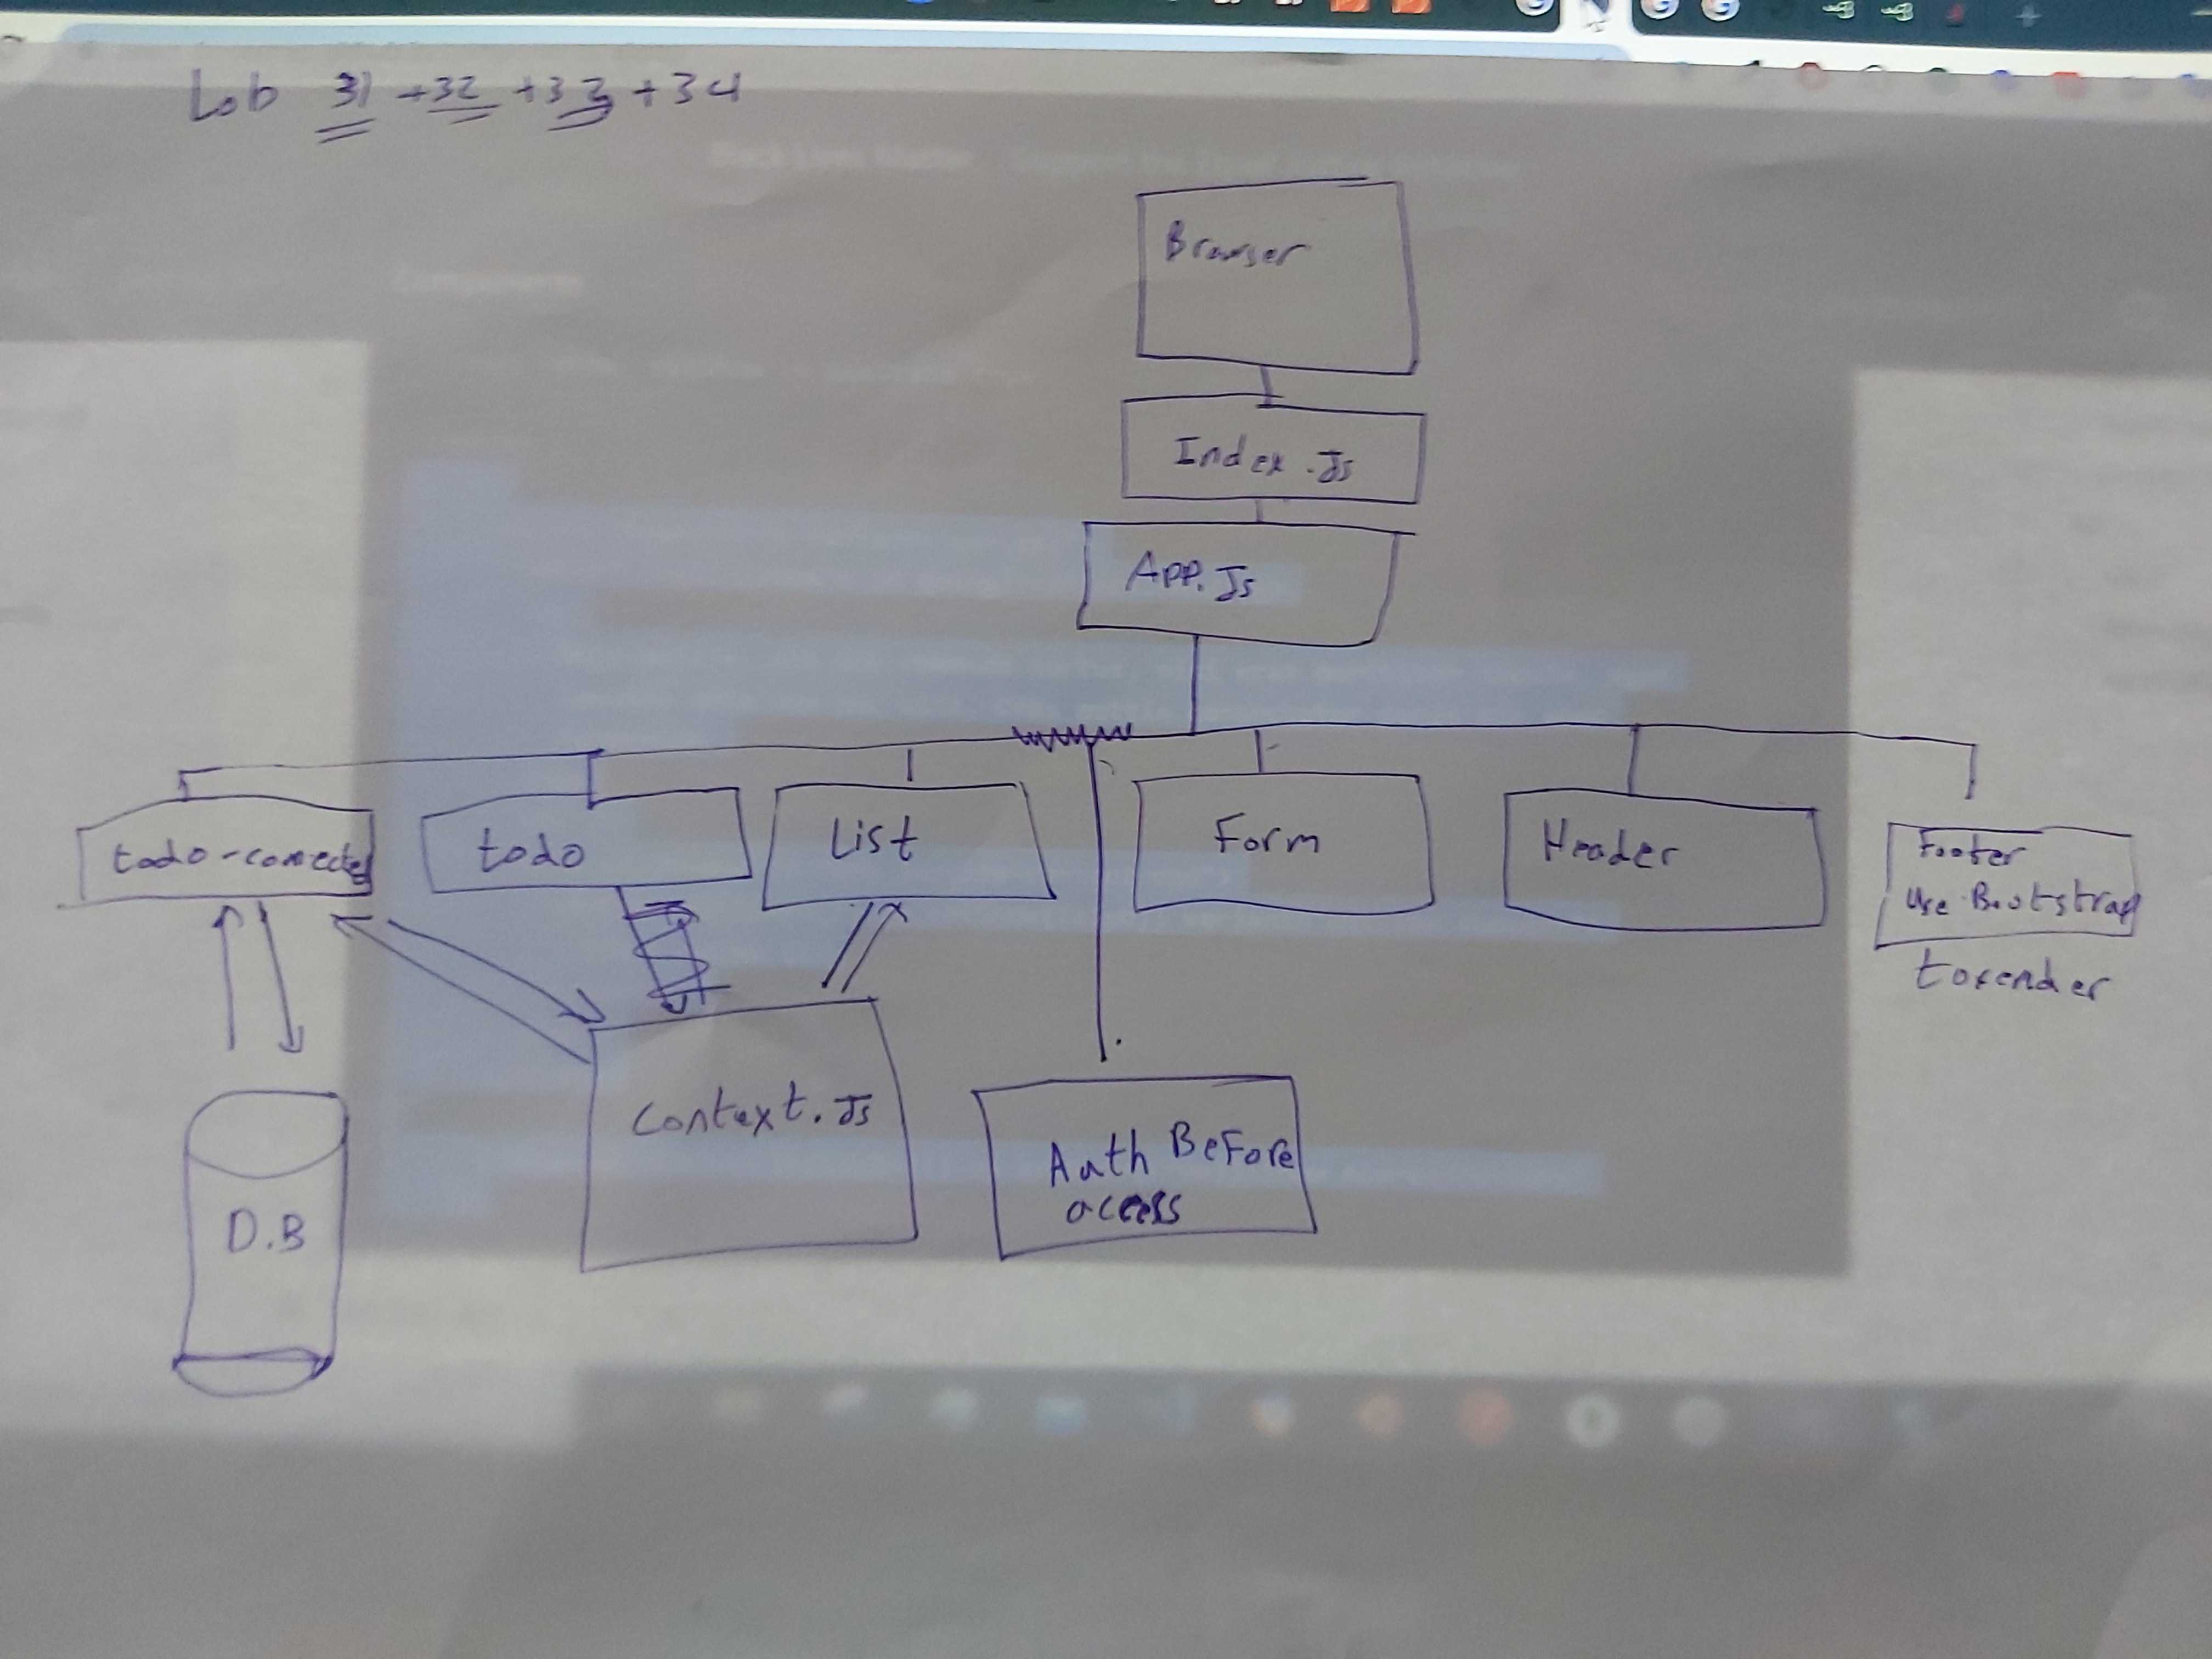 Lab 31 + 32 + 33 + 34
Browser
Index.Js
App.Js
todo-connected
todo
List
Form
Header
Footer
Use Bootstrap
torender
Context.Js
Auth Before
access
D.B